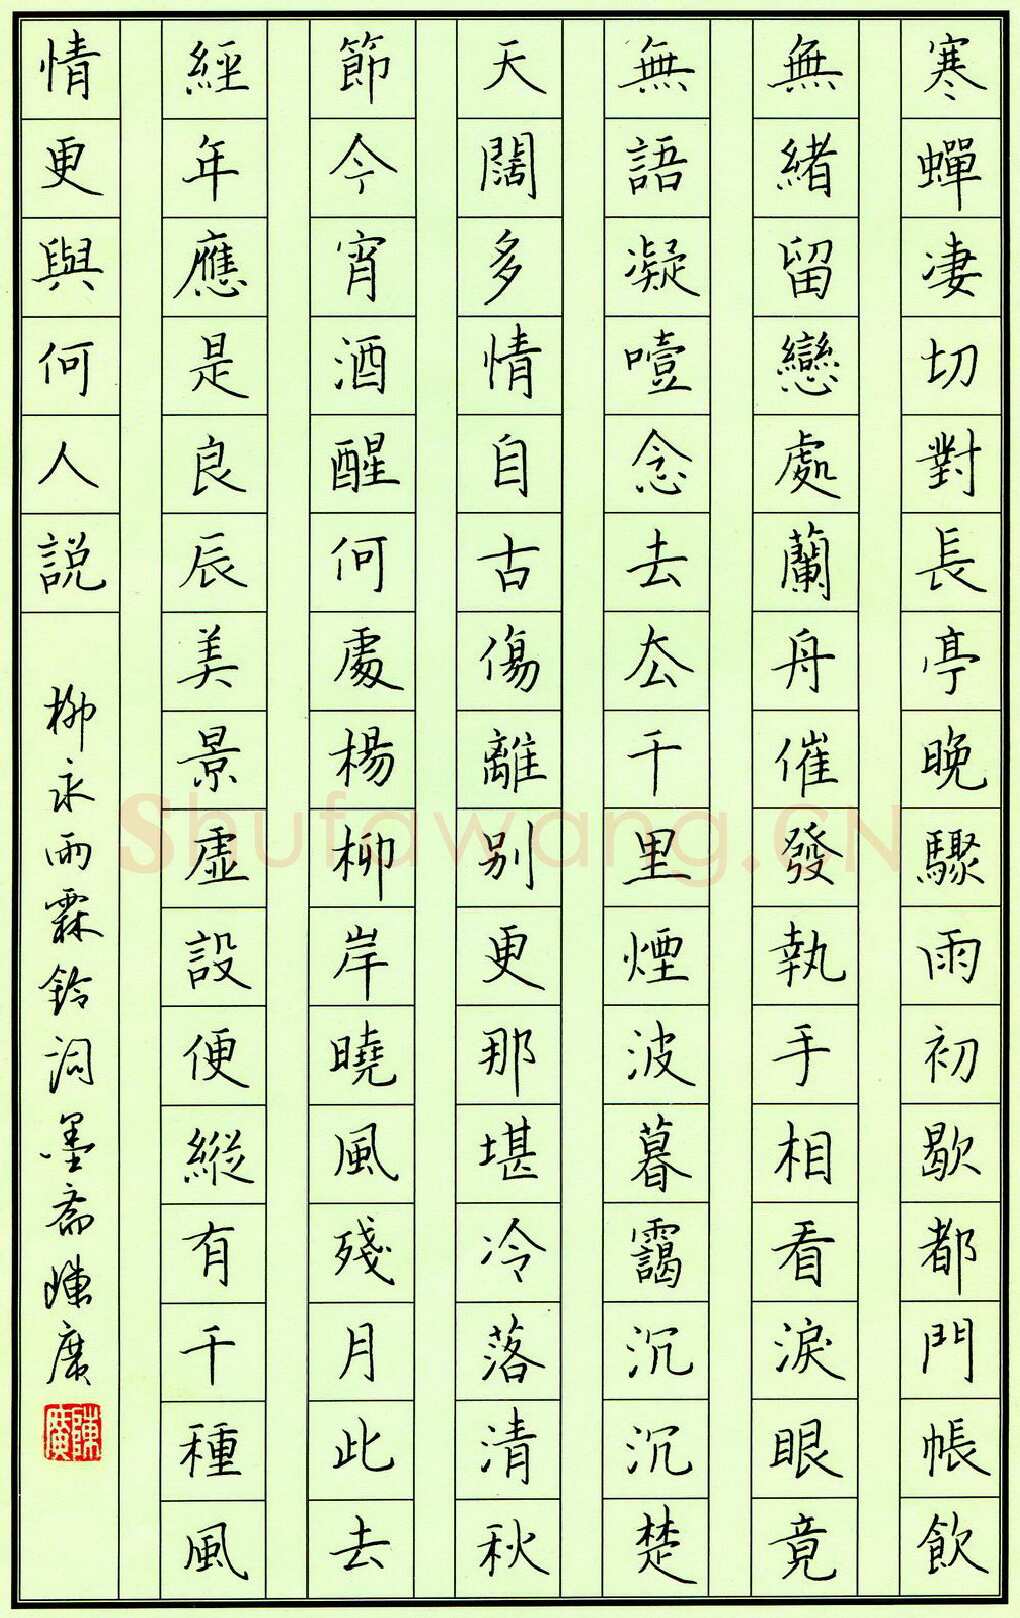 寒蟬凄切對長亭晚驟雨初歇都門帳飲
無緒留戀處蘭舟催發執手相看淚眼竟
無語凝噎念去去千里煙波暮靄沉沉楚
天闊多情自古傷離别更那堪冷落清秋
節今宵酒醒何處楊柳岸曉風殘月此去
經年應是良辰美景虛設便縱有千種風
情更與何人説
柳永雨霖鈴詞墨齋陳廣
陳廣
Shufawang.CN